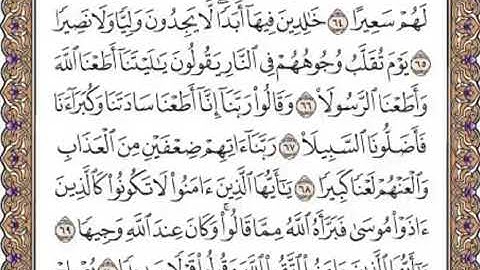 لَهُمْ سَعِيرًا ٦٤ خَٰلِدِينَ فِيهَآ أَبَدًا ۖ لَّا يَجِدُونَ وَلِيًّا وَلَا نَصِيرًا
٦٥ يَوْمَ تُقَلَّبُ وُجُوهُهُمْ فِي ٱلنَّارِ يَقُولُونَ يَٰلَيْتَنَآ أَطَعْنَا ٱللَّهَ
وَأَطَعْنَا ٱلرَّسُولَا۠ ٦٦ وَقَالُوا۟ رَبَّنَآ إِنَّآ أَطَعْنَا سَادَتَنَا وَكُبَرَآءَنَا
فَأَضَلُّونَا ٱلسَّبِيلَا۠ ٦٧ رَبَّنَآ ءَاتِهِمْ ضِعْفَيْنِ مِنَ ٱلْعَذَابِ
وَٱلْعَنْهُمْ لَعْنًا كَبِيرًا ٦٨ يَٰٓأَيُّهَا ٱلَّذِينَ ءَامَنُوا۟ لَا تَكُونُوا۟ كَٱلَّذِينَ
ءَاذَوْا۟ مُوسَىٰ فَبَرَّأَهُ ٱللَّهُ مِمَّا قَالُوا۟ ۚ وَكَانَ عِندَ ٱللَّهِ وَجِيهًا ٦٩